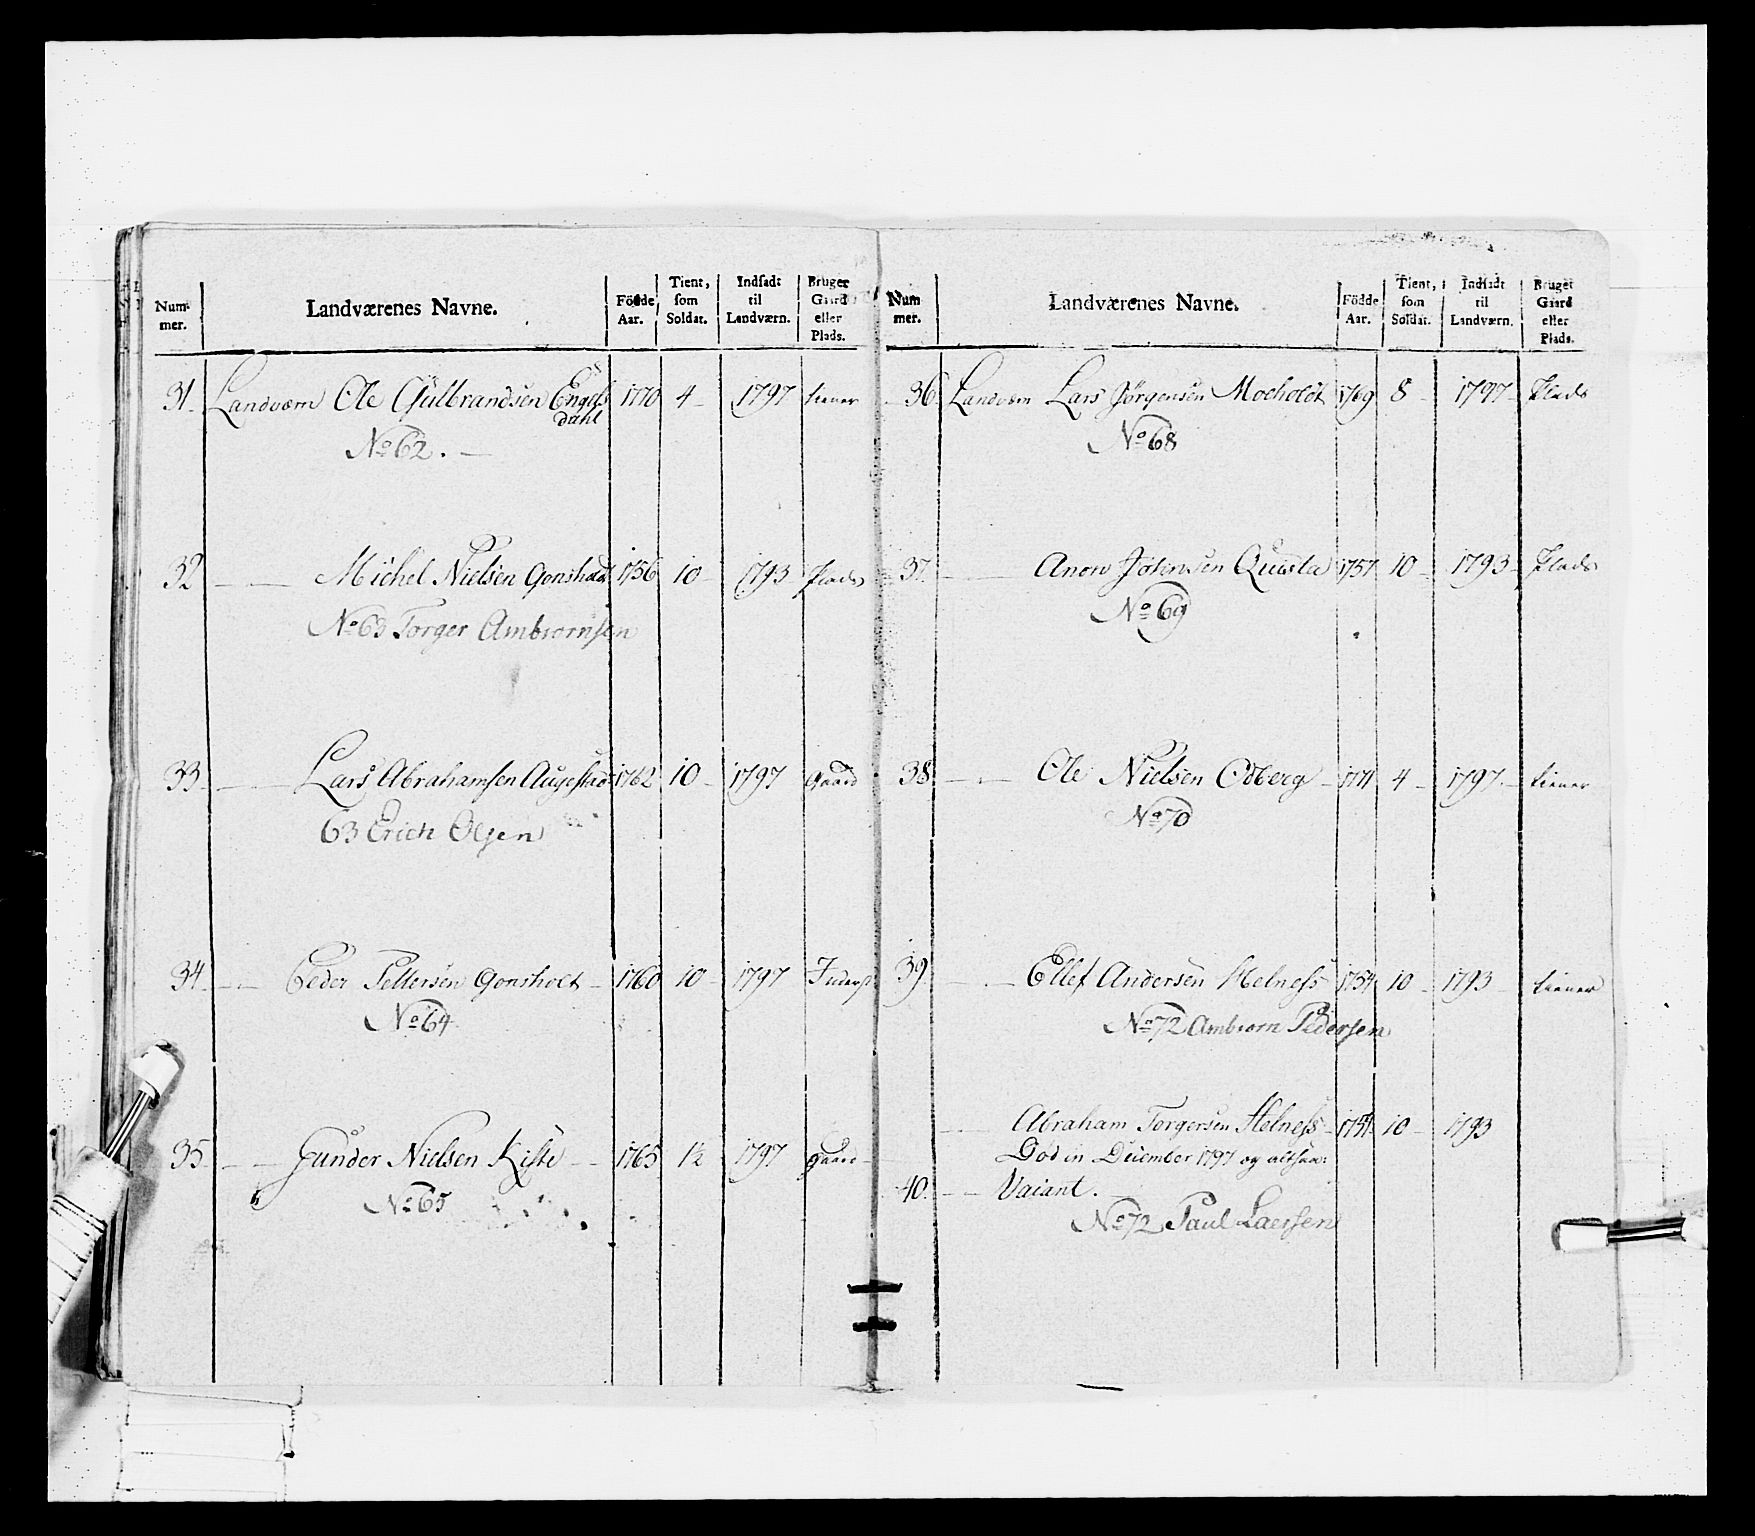 Num-
mer.
Landværenes Navne.
Födde
Aar.
Tient,
som
Soldat.
Indsadt
til
Landværn.
Bruger
Gaard
eller
Plads.
31. Landværn Ole Gulbrandsen Engels 1770 4 - 1797 tiener
dahl
No 62. -
32 - - Michel Nielsen Gonsholt 1756 10 - 1793 Plads
No 63 Torger Ambiornsen
33. - - Lars Abrahamsen Augestad 1762 10 - 1797 Gaard
63 Erich Olsen
34. - - Peder Pettersen Gonsholt - 1760 10 - 1797
No 64
35 - - Gunder Nielsen Kiste - 1765 12 1797 Gaard -
No 65
Num
mer.
Landværenes Navne.
Födde
Aar.
Tient,
som
Soldat.
Indsadt
til
Landværn.
Bruger
Gaard
eller
Plads.
36. Landværn Lars Jörgensen Moeholdt 1769 8 - 1797 - Plads
No 68
37. - Anon Johnsen Quisla 1757 10 - 1793 - Plads
No 69
38. - - Ole Nielsen Odberg - 1771 4 - 1797. - tiener
No 70
39. - - Ellef Andersen Helness 1754 10 - 1793 - tiener
No 72 Ambiorn Pedersen
- - Abraham Torgersen Helness - 1754 10 - 1793
Död in December 1797 og altsaa
40. - - Vacant.
No 72 Paul Laersen